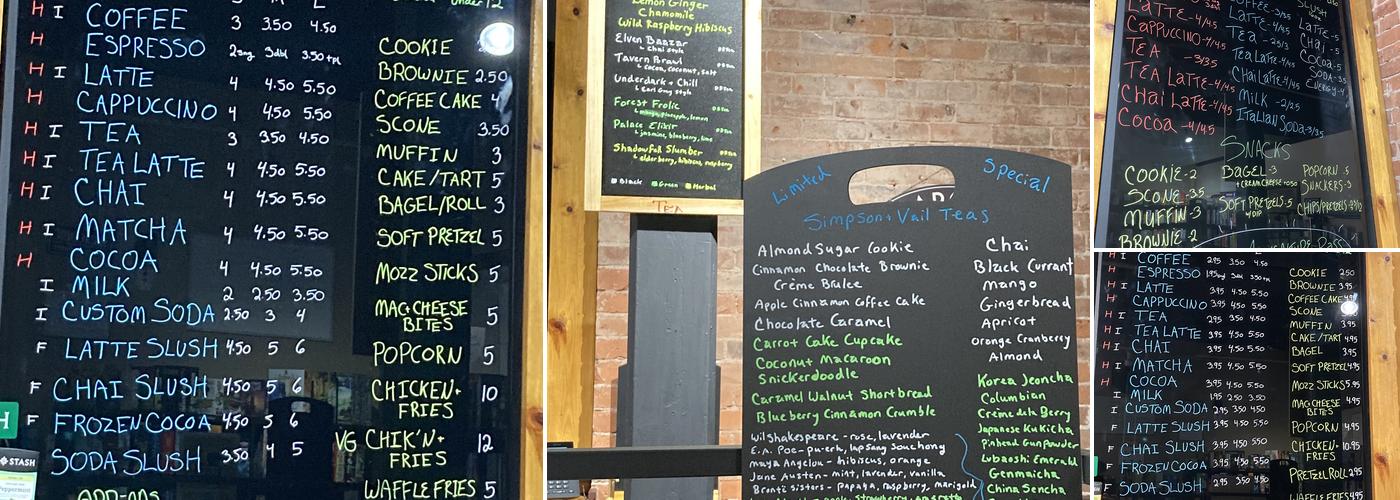 H I COFFEE 3 3.50 4.50
H ESPRESSO 2sng 3dbl 3.50tpl
H I LATTE 4 4.50 5.50
H CAPPUCCINO 4 4.50 5.50
H I TEA 3 3.50 4.50
H I TEA LATTE 4 4.50 5.50
H I CHAI 4 4.50 5.50
H I MATCHA 4 4.50 5.50
H COCOA 4 4.50 5.50
I MILK 2 2.50 3.50
I CUSTOM SODA 2.50 3 4
F LATTE SLUSH 4.50 5 6
F CHAI SLUSH 4.50 5 6
F FROZEN COCOA 4.50 5 6
SODA SLUSH 3.50 4 5
ADD-ONS
STASH
under 12
COOKIE
BROWNIE 2.50
COFFEE CAKE 4
SCONE 3.50
MUFFIN 3
CAKE/TART 5
BAGEL/ROLL 3
SOFT PRETZEL 5
MOZZ STICKS 5
MAC+CHEESE
BITES 5
POPCORN 5
CHICKEN+
FRIES 10
VG CHIK'N+
FRIES 12
WAFFLE FRIES 5
Lemon Ginger
Chamomile
Wild Raspberry Hibiscus
Elven Bazaar
Chai style
Tavern Brawl
cocoa, coconut, salt
Underdark + Chill
Earl Grey style
Forest Frolic
mango, pineapple, lemon
Palace Elixir
jasmine, blueberry, lime
Shadowfell Slumber
elderberry, hibiscus, raspberry
Black Green Herbal
TEA
Limited Special
Simpson + Vail Teas
Almond Sugar Cookie
Cinnamon Chocolate Brownie
Crème Brulee
Apple Cinnamon Coffee Cake
Chocolate Caramel
Carrot Cake Cupcake
Coconut Macaroon
Snickerdoodle
Caramel Walnut Shortbread
Blueberry Cinnamon Crumble
Wil Shakespeare - rose, lavender
E.A. Poe - pu-erh, lapsang souchong
Maya Angelou - hibiscus, orange
Jane Austen - mint, lavender, vanilla
Brontë Sisters - papaya, raspberry, marigold
Chai
Black Currant
Mango
Gingerbread
Apricot
Orange Cranberry
Almond
Korea Jeoncha
Columbian
Crème de la Berry
Japanese Kukicha
Pinhead Gunpowder
Lubaoshi Emerald
Genmaicha
China Sencha
Latte - 4/4.5
Cappuccino - 4/4.5
TEA - 3/3.5
TEA Latte - 4/4.5
Chai Latte - 4/4.5
Cocoa - 4/4.5
COFFEE - 3/3.5
Latte - 4/4.5
Tea - 2.5/3
Tea Latte - 4/4.5
Chai Latte - 4/4.5
Milk - 2/2.5
Italian Soda - 3/3.5
SLUSH
Latte - 5
Chai - 5
Cocoa - 5
SODA - 3.5
SNACKS
COOKIE - 2
SCONE - 3.5
MUFFIN - 3
BROWNIE - 2
BAGEL - 3
+CREAM CHEESE +0.50
SOFT PRETZEL - 5
w/DIP
POPCORN - 5
SNACKERS - 3
CHIPS/PRETZELS
I COFFEE 2.95 3.50 4.50
H ESPRESSO
H I LATTE 3.95 4.50 5.50
H CAPPUCCINO 3.95 4.50 5.50
H I TEA 2.95 3.50 4.50
H I TEA LATTE 3.95 4.50 5.50
H I CHAI 3.95 4.50 5.50
H I MATCHA 3.95 4.50 5.50
H COCOA 3.95 4.50 5.50
I MILK 1.95 2.50 3.50
I CUSTOM SODA 2.95 3.50 4.50
F LATTE SLUSH 3.95 4.50 5.50
F CHAI SLUSH 3.95 4.50 5.50
F FROZEN COCOA 3.95 4.50 5.50
F SODA SLUSH 2.95 3.50 4.50
COOKIE 2.50
BROWNIE 3.95
COFFEE CAKE
SCONE
MUFFIN 3.95
CAKE/TART 4.95
BAGEL 3.95
SOFT PRETZEL 4.95
MOZZ STICKS 5.95
MAC+CHEESE
BITES 4.95
POPCORN 4.95
CHICKEN+
FRIES 10.95
PRETZEL ROLL 2.95
WAFFLE FRIES 4.95